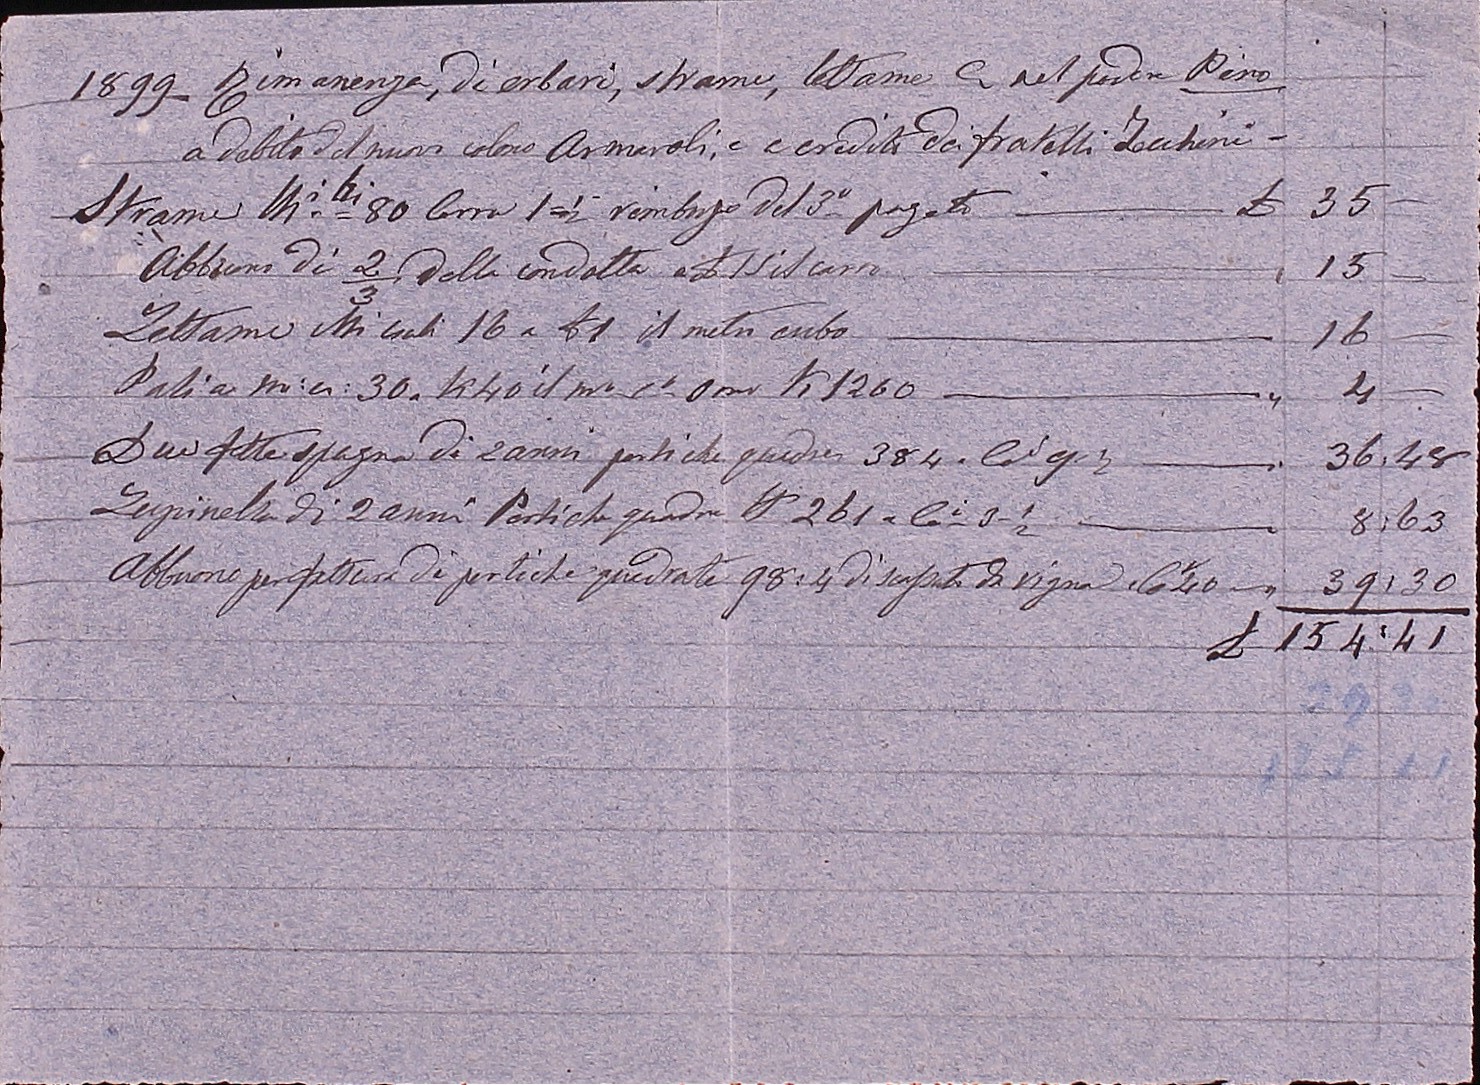 1899 Rimanenza, di erbari, strame, lettame & nel podere Pino
a debito del nuovo colono Armaroli, e a credito dei fratelli Zecchini -
Strame 80 Carra 1 rimborso del 3º pagato £ 35 -
Abbuono di 2/3 della condotta a £ 15 il carro " 15 -
Lettame Mi cubi 16 a £ 1 il metro cubo 16 -
30 a 40 il 1260 " 4 -
Due fette spagna di 2 anni pertiche quadre 384 a Ci 9 ½ " 36:48
Lupinella di 2 anni Pertiche quadre 261 a Ci 3 ½ " 8:63
Abbuono per fattura di pertiche quadrate 98:4 di scassato da vigna Ci 40 " 39:30
£ 154:41